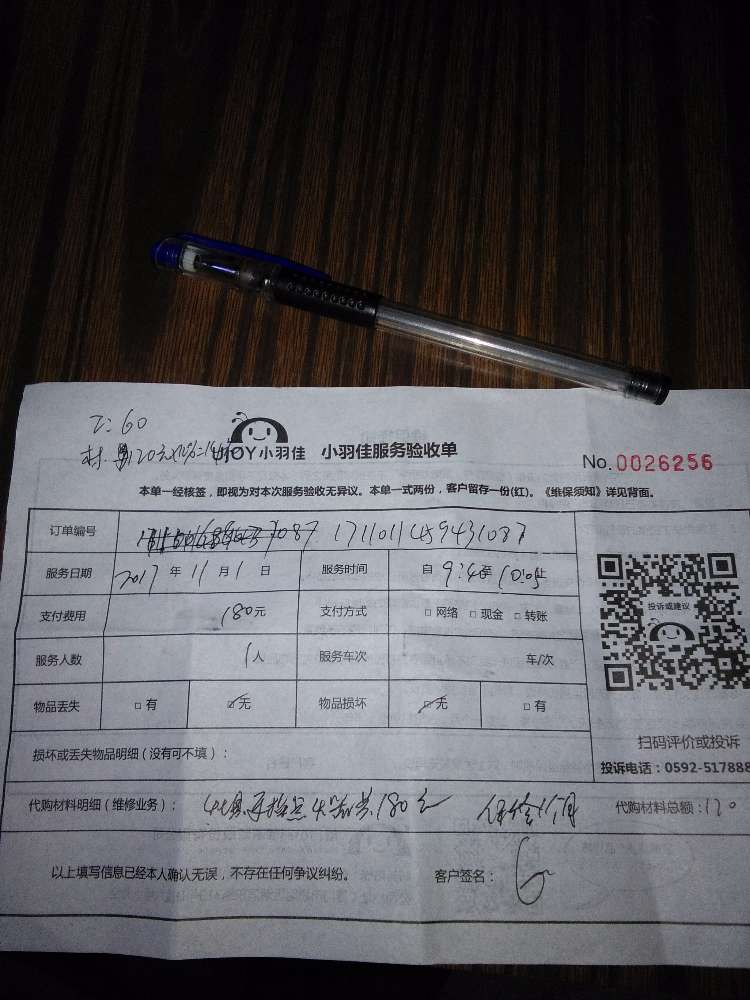 工: 60
材: 120元
UJOY小羽佳 小羽佳服务验收单
No. 0026256
本单一经核签，即视为对本次服务验收无异议。本单一式两份，客户留存一份(红)。《维保须知》详见背面。
订单编号 1711011459431087
服务日期 2017 年 11 月 1 日 服务时间 自 9:40 至 10:05 止
支付费用 180元 支付方式 □ 网络 □ 现金 □ 转账
投诉或建议
服务人数 1人 服务车次 车/次
物品丢失 □ 有 □ 无 物品损坏 □ 无 □ 有
扫码评价或投诉
损坏或丢失物品明细 (没有可不填)：
投诉电话：0592-517888
代购材料明细 (维修业务)： 180元 保修1个月 代购材料总额：120
以上填写信息已经本人确认无误，不存在任何争议纠纷。 客户签名：